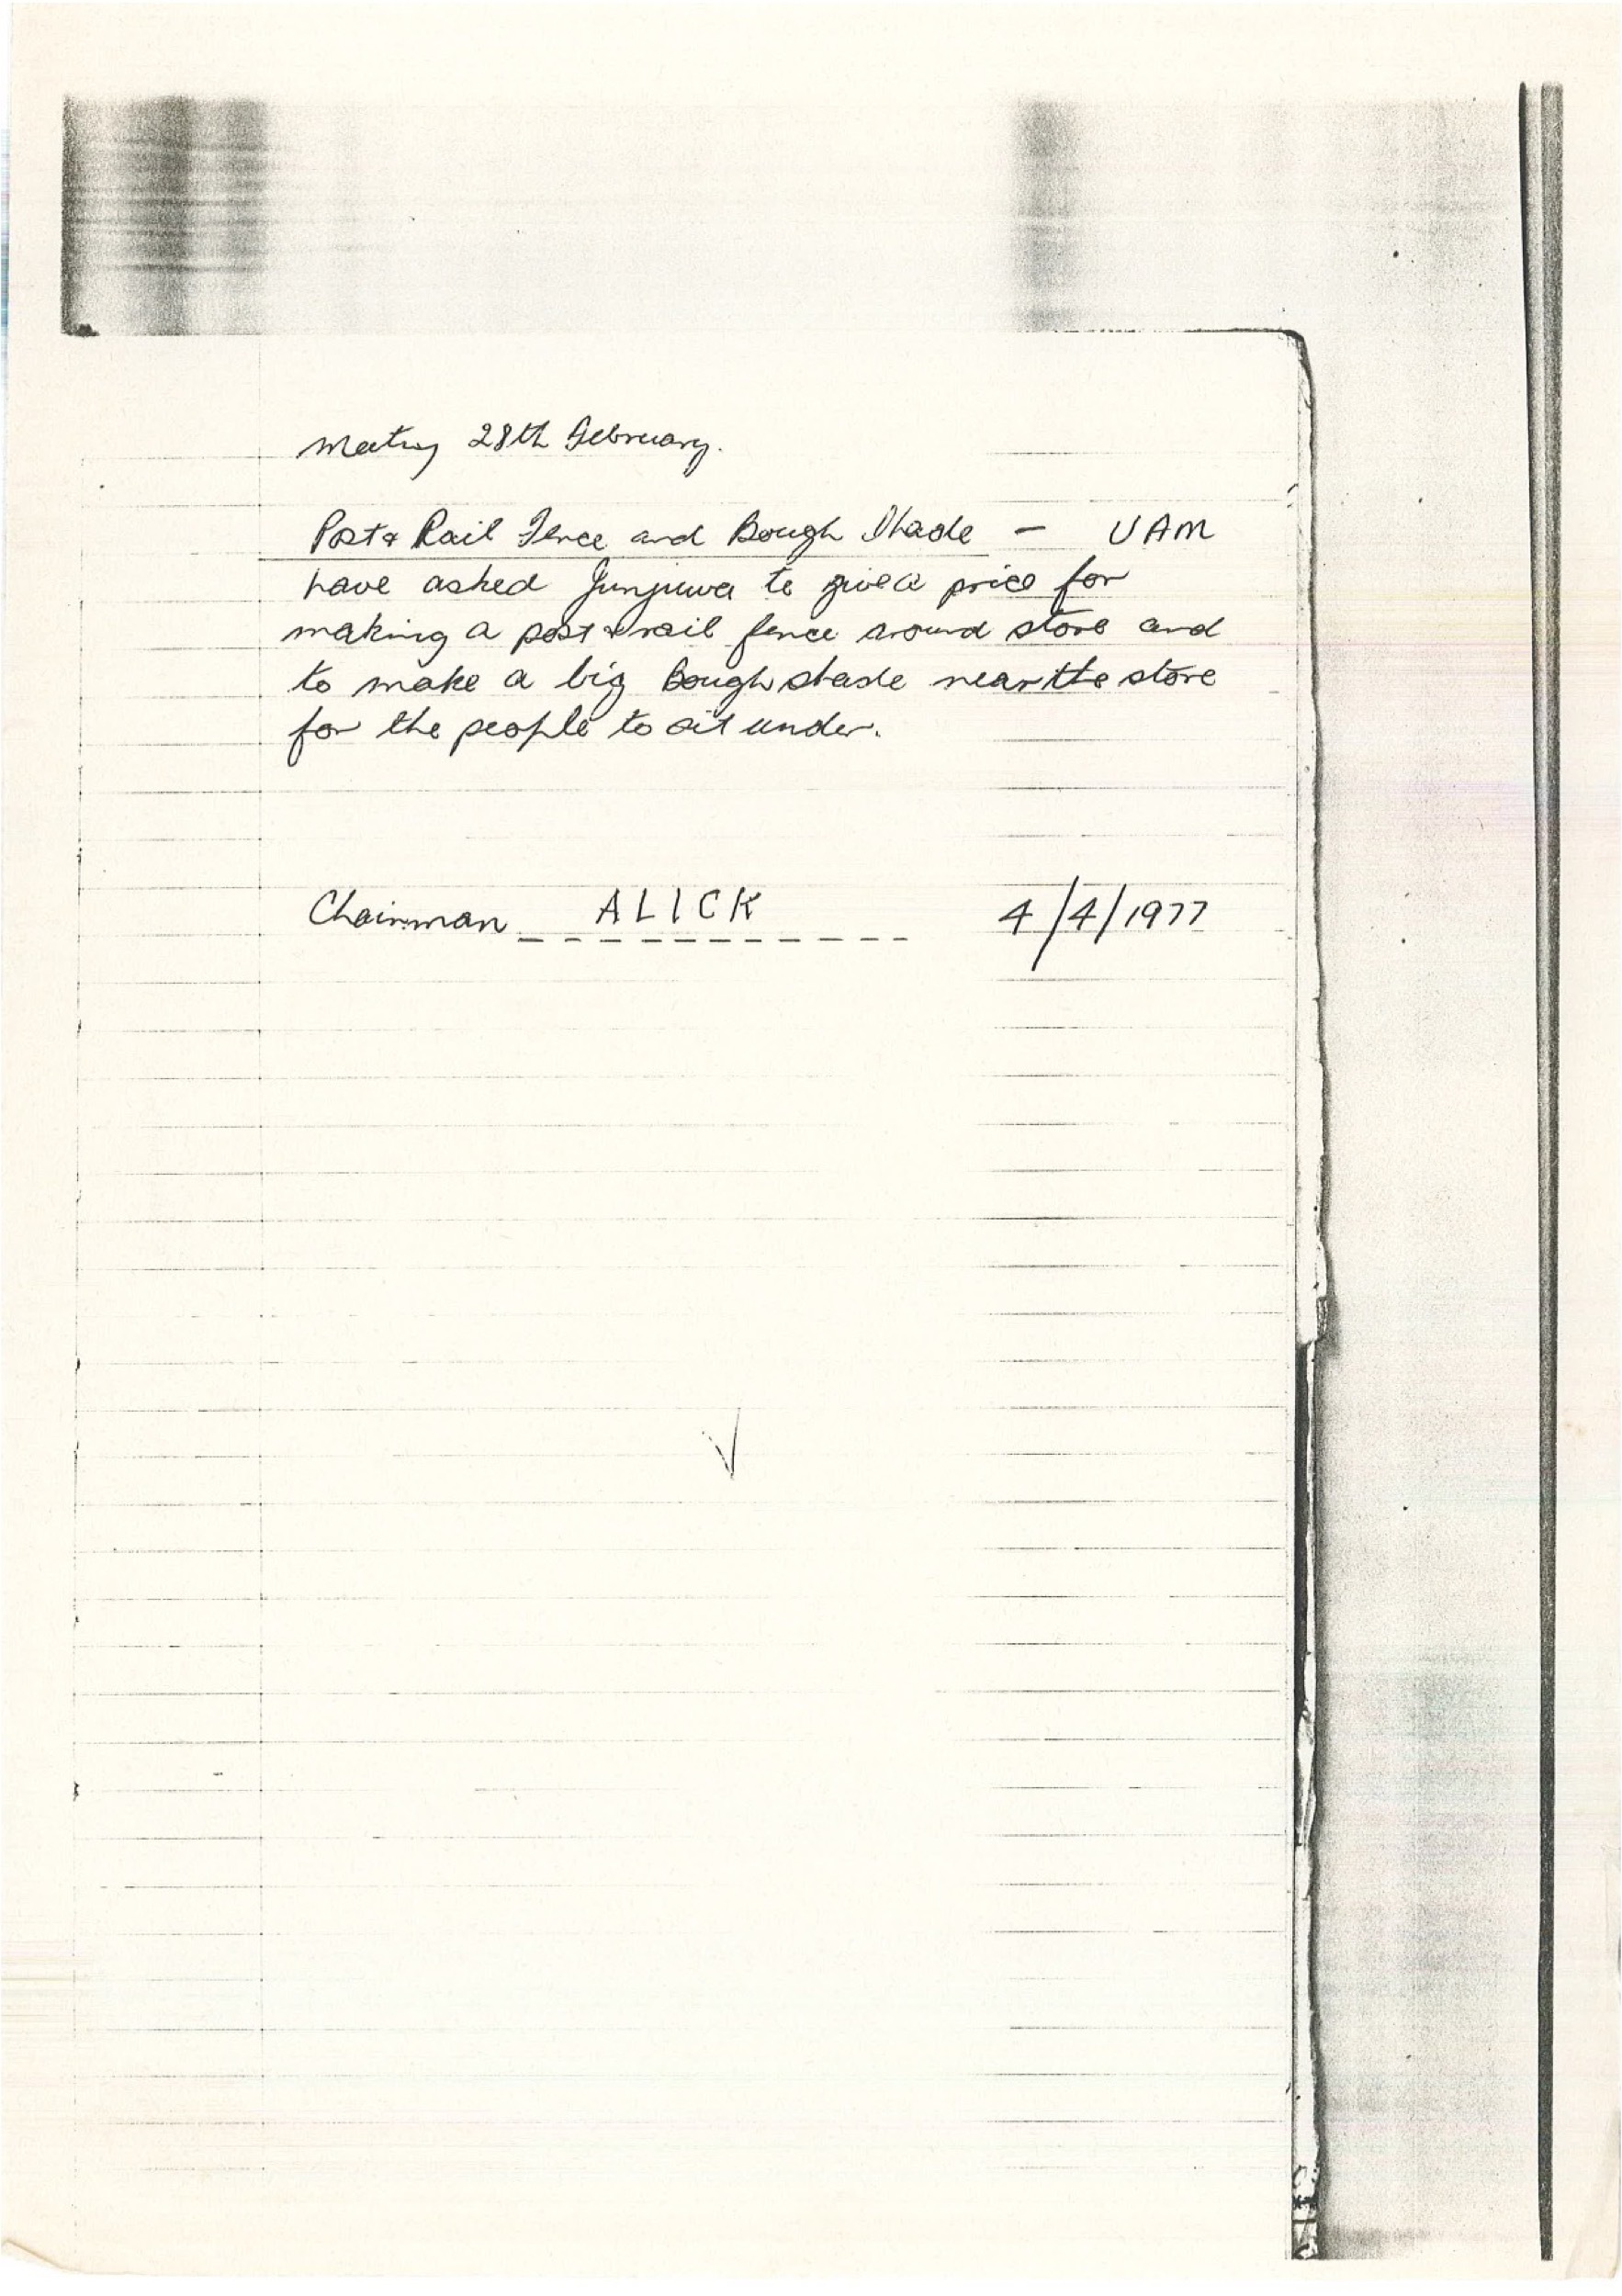 Meeting 28th February.
Post & Rail Fence and Bough Shade — UAM
have asked Junjuwa to give a price for
making a post & rail fence around store and
to make a big bough shade near the store
for the people to sit under.
Chairman ALICK 4/4/1977